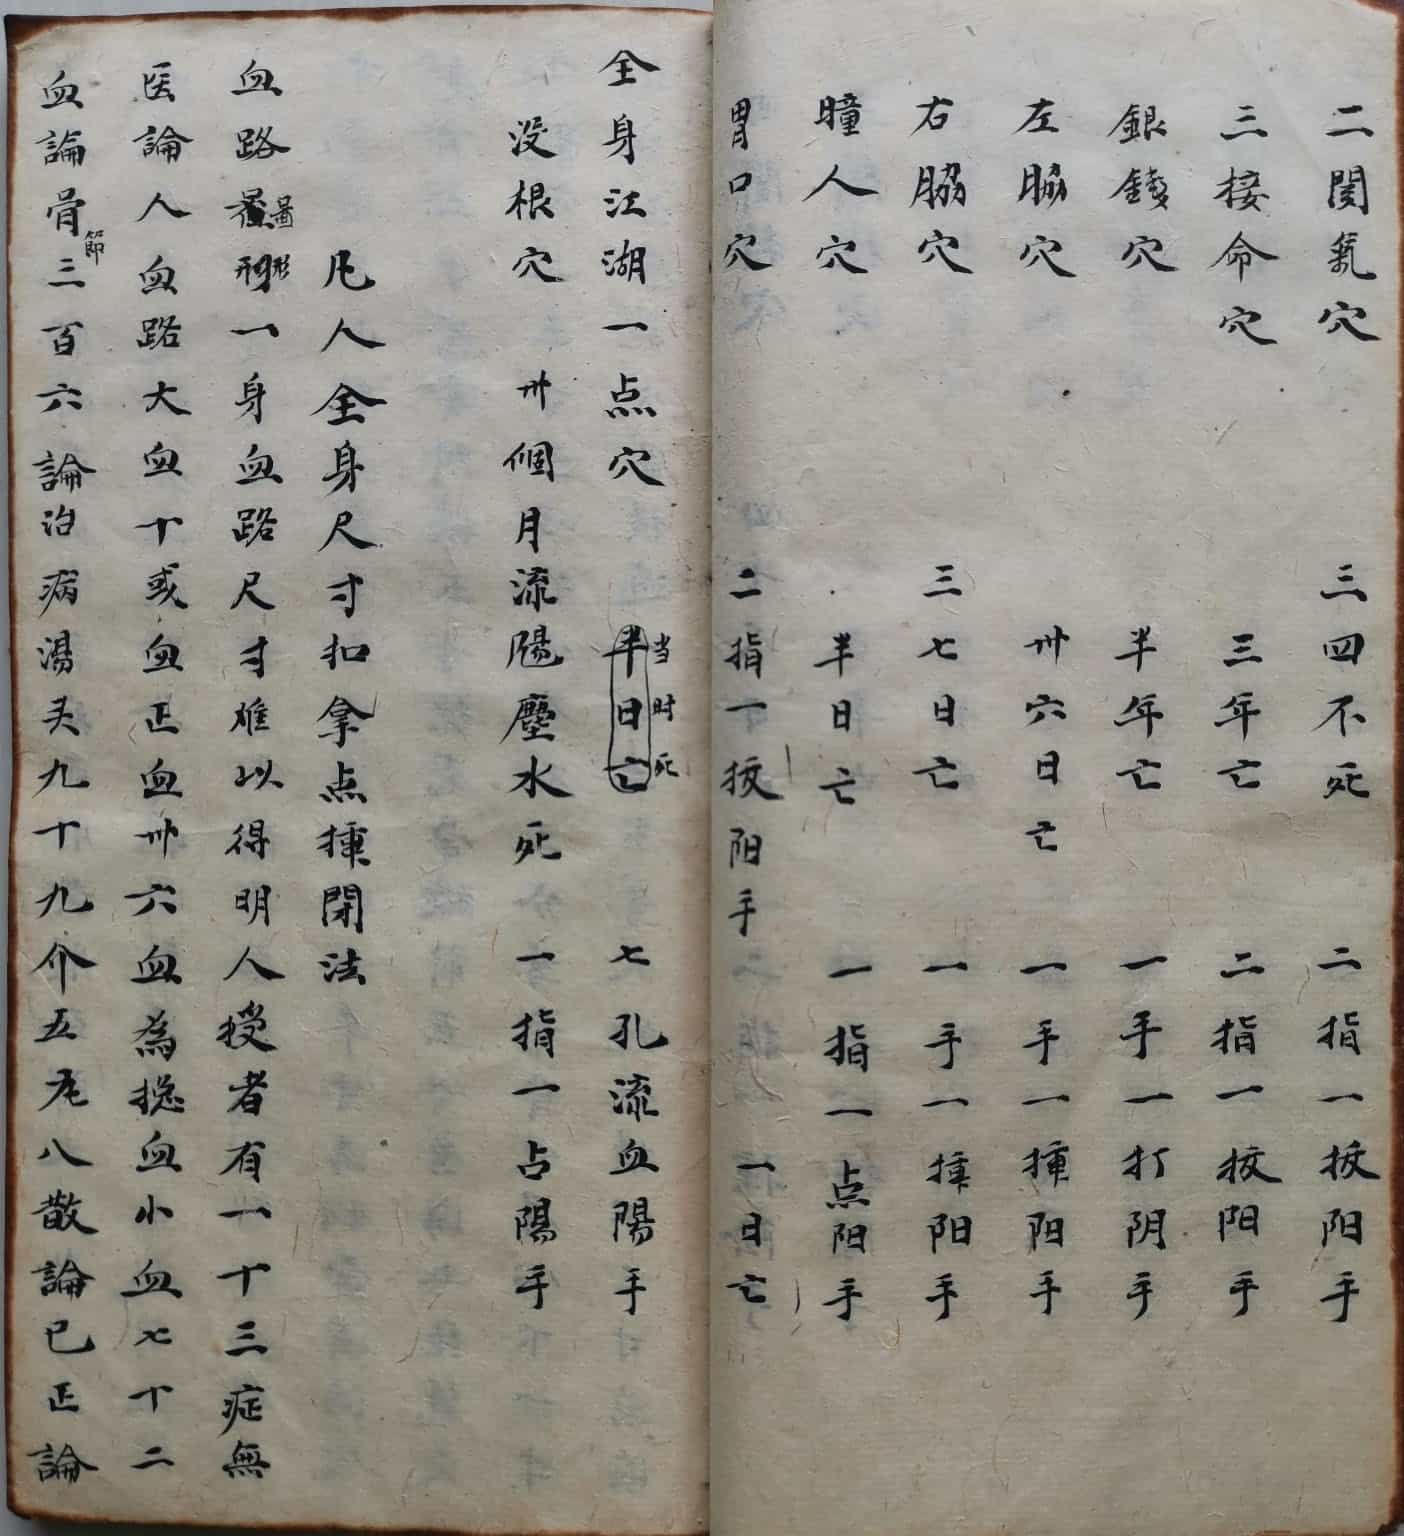 二関氣穴 三四不死 二指一扳阳手
三接命穴 三年亡 二指一扳阳手
銀錢穴 半年亡 一手一打阴手
左脇穴 卅六日亡 一手一揰阳手
右脇穴 三七日亡 一手一揰阳手
瞳人穴 半日亡 一指一点阳手
胃口穴 二指一扳阳手 一日亡
全身江湖一点穴 半日亡 当时死 七孔流血陽手
没根穴 卅個月流腸塵水死 一指一占陽手
凡人全身尺寸扣拿点揰閉法
血路 圖形一身血路尺寸难以得明人授者有一十三症無
医論人血路大血十或血正血卅六血為揔血小血七十二
血論骨節三百六論治病湯头九十九介五丸八散論已正論